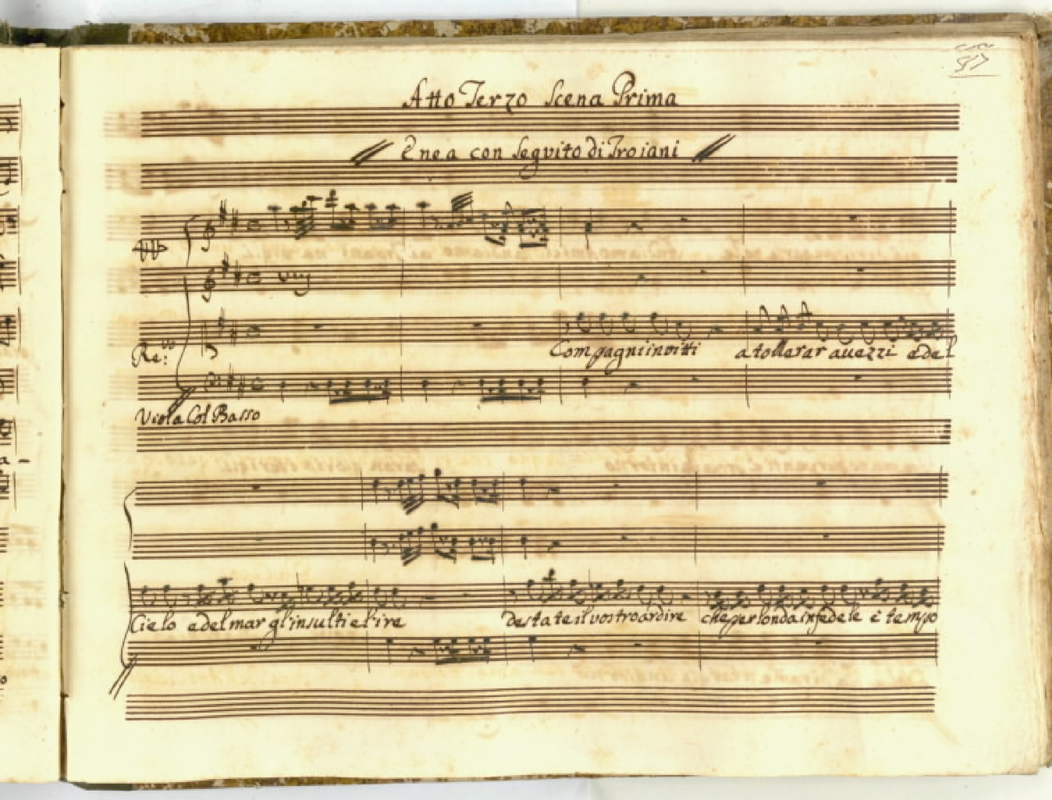 Atto Terzo Scena Prima
Enea con Seguito di Troiani
Compagni invitti a tollerar auezzi e del
Viola Col Basso
Cielo e del mar gl'insulti e l'ire destate il vostro ardire che per l'onda infedele è tempo